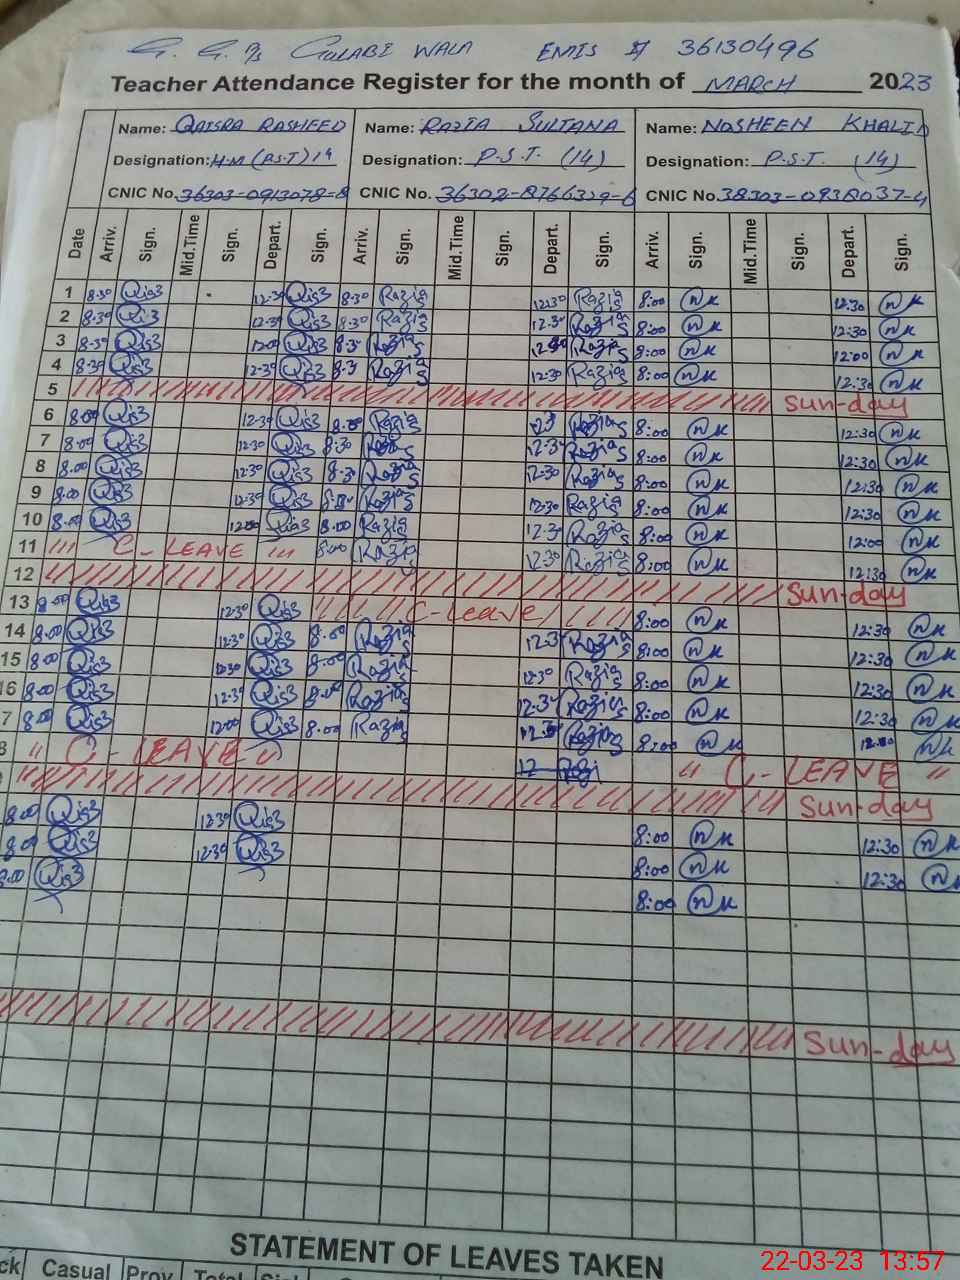 G. G. P/S GULABI WALA EMIS # 36130496
Teacher Attendance Register for the month of MARCH 2023
Name: QAISRA RASHEED Name: RAZIA SULTANA Name: NOSHEEN KHALID
Designation: H.M (P.S.T) 14 Designation: P.S.T. (14) Designation: P.S.T. (14)
CNIC No. 36303-0913078-8 CNIC No. 36302-8766329-6 CNIC No. 38303-0938037-4
Date Arriv. Sign. Mid.Time Sign. Depart. Sign. Arriv. Sign. Mid.Time Sign. Depart. Sign. Arriv. Sign. Mid.Time Sign. Depart. Sign.
1 8.30 Qis3 12.30 Qis3 8.30 Razia 12:30 Razia 8:00 NK 12:30 NK
2 8.30 Qis3 12.30 Qis3 8.30 Razia 12.30 Razia 8:00 NK 12:30 NK
3 8.30 Qis3 12.00 Qis3 8.30 Razia Razia 8:00 NK 12:00 NK
4 8.30 Qis3 12.30 Qis3 8.3 Razia 12.30 Razia 8:00 NK 12:30 NK
5 Sun-day
6 8.00 Qis3 12.30 Qis3 8.00 Razia 12.3 Razia 8:00 NK 12:30 NK
7 8.00 Qis3 12.30 Qis3 8.30 Razia 12.30 Razia 8:00 NK 12:30 NK
8 8.00 Qis3 12.30 Qis3 8.30 Razia 12.30 Razia 8:00 NK 12:30 NK
9 8.00 Qis3 12.30 Qis3 Razia 12.30 Razia 8:00 NK 12:30 NK
10 8.00 Qis3 12.00 Qis3 8.00 Razia 12.3 Razia 8:00 NK 12:00 NK
11 C-LEAVE 8.00 Razia 12.30 Razia 8:00 NK 12:30 NK
12 Sun-day
13 8.00 Qis3 12.30 Qis3 C-Leave 8:00 NK 12:30 NK
14 8.00 Qis3 12.30 Qis3 8.00 Razia 12.3 Razia 8:00 NK 12:30 NK
15 8.00 Qis3 12.30 Qis3 8.00 Razia 12.30 Razia 8:00 NK 12:30 NK
16 8.00 Qis3 12.30 Qis3 8.00 Razia 12.30 Razia 8:00 NK 12:30 NK
7 8.00 Qis3 12.00 Qis3 8.00 Razia Razia 8:00 NK NK
8 " C-LEAVE " 12 Razi " C-LEAVE "
Sun-day
8.00 Qis3 12.30 Qis3 8:00 NK 12:30 NK
8.00 Qis3 12.30 Qis3 8:00 NK 12:30 NK
8.00 Qis3 8:00 NK
Sun-day
STATEMENT OF LEAVES TAKEN
ck Casual Prov Total
22-03-23 13:57